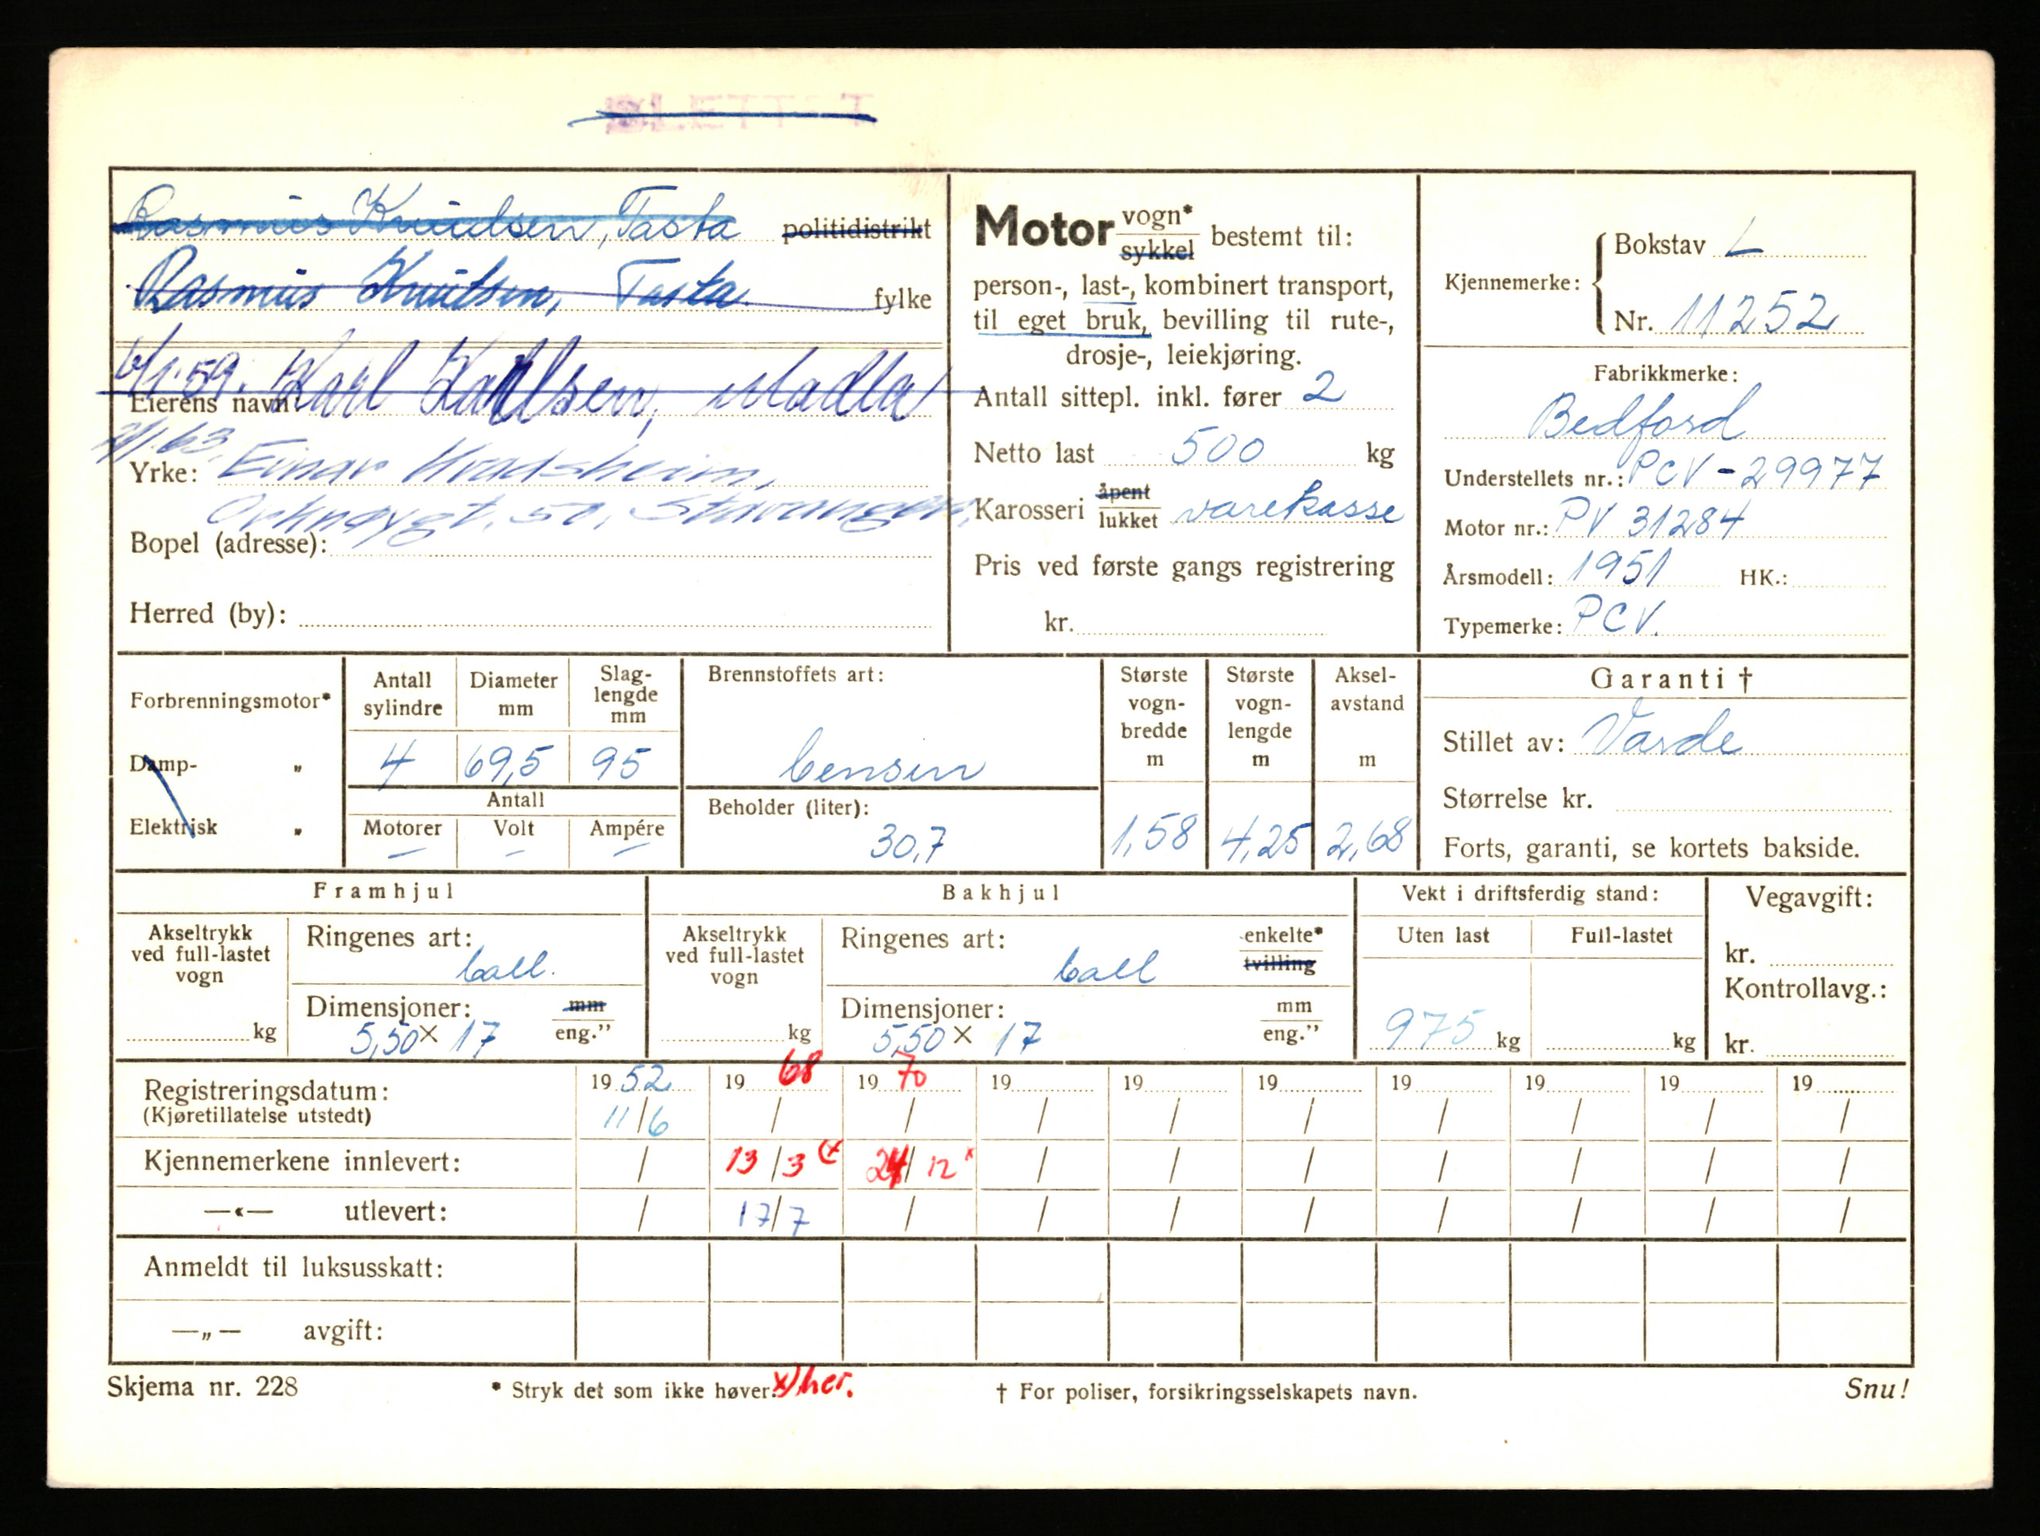 Rasmus Knudsen, Tasta politidistrikt
Rasmus Knutsen, Tasta fylke
6/1.59. Karl Karlsen, Madla
Eierens navn:
63. Einar
Yrke:
50, Stavanger,
Bopel (adresse):
Herred (by):
Motor vogn* sykkel bestemt til:
person-, last-, kombinert transport,
til eget bruk, bevilling til rute-,
drosje-, leiekjøring.
Antall sittepl. inkl. fører 2
Netto last 500 kg
Karosseri åpent lukket varekasse
Pris ved første gangs registrering
kr.
Kjennemerke: Bokstav L
Nr. 11252
Fabrikkmerke:
Bedford
Understellets nr.: PCV-29977
Motor nr.: PV 31284
Årsmodell: 1951 HK.:
Typemerke: PCV.
Forbrenningsmotor*
Damp- „
Elektrisk „
Antall sylindre
Diameter mm
Slag-lengde mm
4 69,5 95
Antall
Motorer Volt Ampére
– – –
Brennstoffets art:
bensin
Beholder (liter):
30,7
Største vogn-bredde m
1,58
Største vogn-lengde m
4,25
Aksel-avstand m
2,68
Garanti †
Stillet av: Varde
Størrelse kr.
Forts, garanti, se kortets bakside.
Framhjul
Akseltrykk ved full-lastet vogn
kg
Ringenes art:
ball.
Dimensjoner: mm
5,50 x 17 eng.”
Bakhjul
Akseltrykk ved full-lastet vogn
kg
Ringenes art: enkelte*
ball tvilling
Dimensjoner: mm
5,50 x 17 eng.”
Vekt i driftsferdig stand:
Uten last Full-lastet
975 kg kg
Vegavgift:
kr.
Kontrollavg.:
kr.
Registreringsdatum: 19 52 19 68 19 70 19 19 19 19 19 19 19
(Kjøretillatelse utstedt) 11/6 / / / / / / / / /
Kjennemerkene innlevert: / 13/3 x 24/12 x / / / / / / /
—«— utlevert: / 17/7 / / / / / / / /
Anmeldt til luksusskatt:
—„— avgift:
Skjema nr. 228 * Stryk det som ikke høver. x) her. † For poliser, forsikringsselskapets navn. Snu!